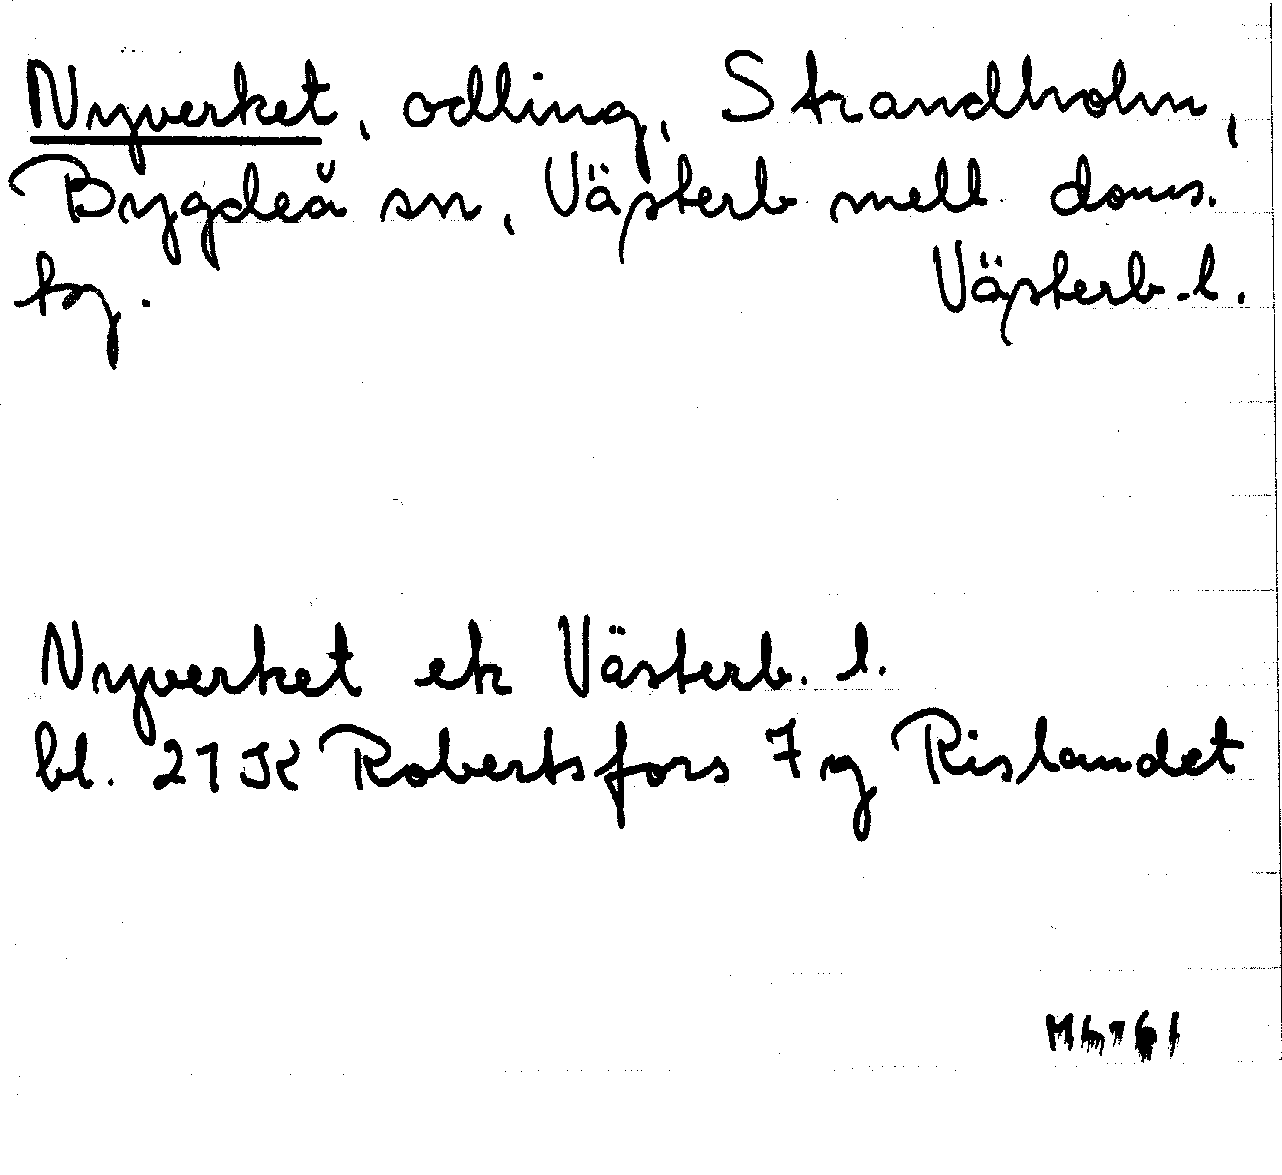 Nyverket, odling, Strandholm,
Bygdeå sn, Västerb mell doms.
tg. Västerb. l.
Nyverket ek Västerb. l.
bl. 21K Robertsfors 7 g Rislandet